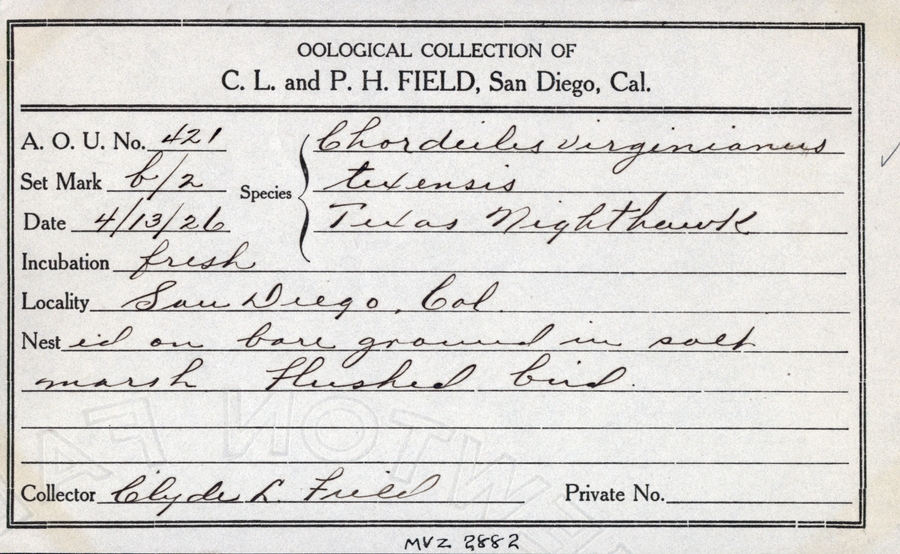 OOLOGICAL COLLECTION OF
C. L. and P. H. FIELD, San Diego, Cal.
A. O. U. No. 421
Set Mark b/2
Date 4/13/26
Species Chordeiles virginianus
texensis
Texas Nighthawk
Incubation fresh
Locality San Diego, Cal.
Nest ed on bare ground in salt
marsh Flushed bird.
Collector Clyde L. Field Private No.
MVZ 2882